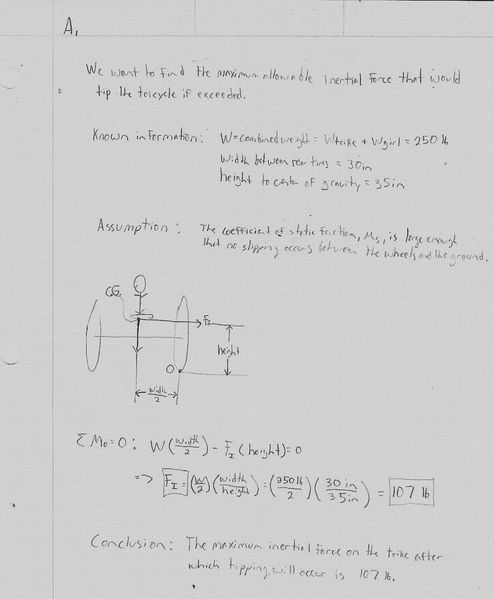 A.
We want to find the maximum allowable inertial force that would
tip the tricycle if exceeded.
Known information: W = combined weight = Wtrike + Wgirl = 250 lb
width between rear tires = 30in
height to center of gravity = 35in
Assumption: The coefficient of static friction, Ms, is large enough
that no slipping occurs between the wheels and the ground.
CG.
FI
height
O
width/2
ΣMo=0: W(width/2) - FI(height)=0
=> FI = (W/2)(width/height) = (250 lb/2)(30 in/35in) = 107 lb
Conclusion: The maximum inertial force on the trike after
which tipping will occur is 107 lb.